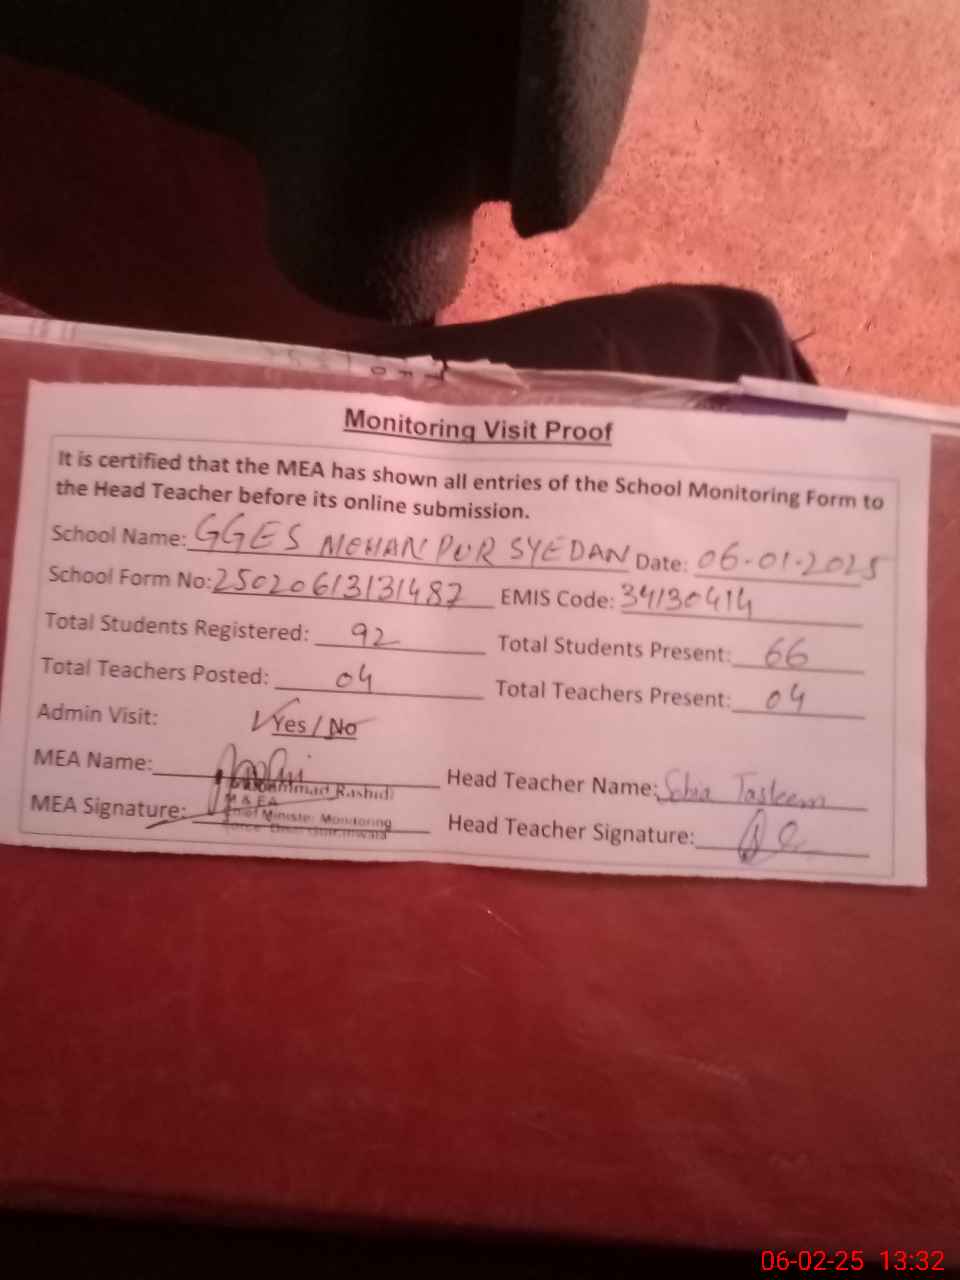 Monitoring Visit Proof
It is certified that the MEA has shown all entries of the School Monitoring Form to
the Head Teacher before its online submission.
School Name: GGES MEHAN PUR SYEDAN Date: 06-01-2025
School Form No: 25020613131487 EMIS Code: 34130414
Total Students Registered: 92 Total Students Present: 66
Total Teachers Posted: 04 Total Teachers Present: 04
Admin Visit: Yes / No
MEA Name: Head Teacher Name: Sobia Tasleem
Muhammad Rashid
M & EA
MEA Signature: Chief Minister Monitoring Head Teacher Signature:
06-02-25 13:32